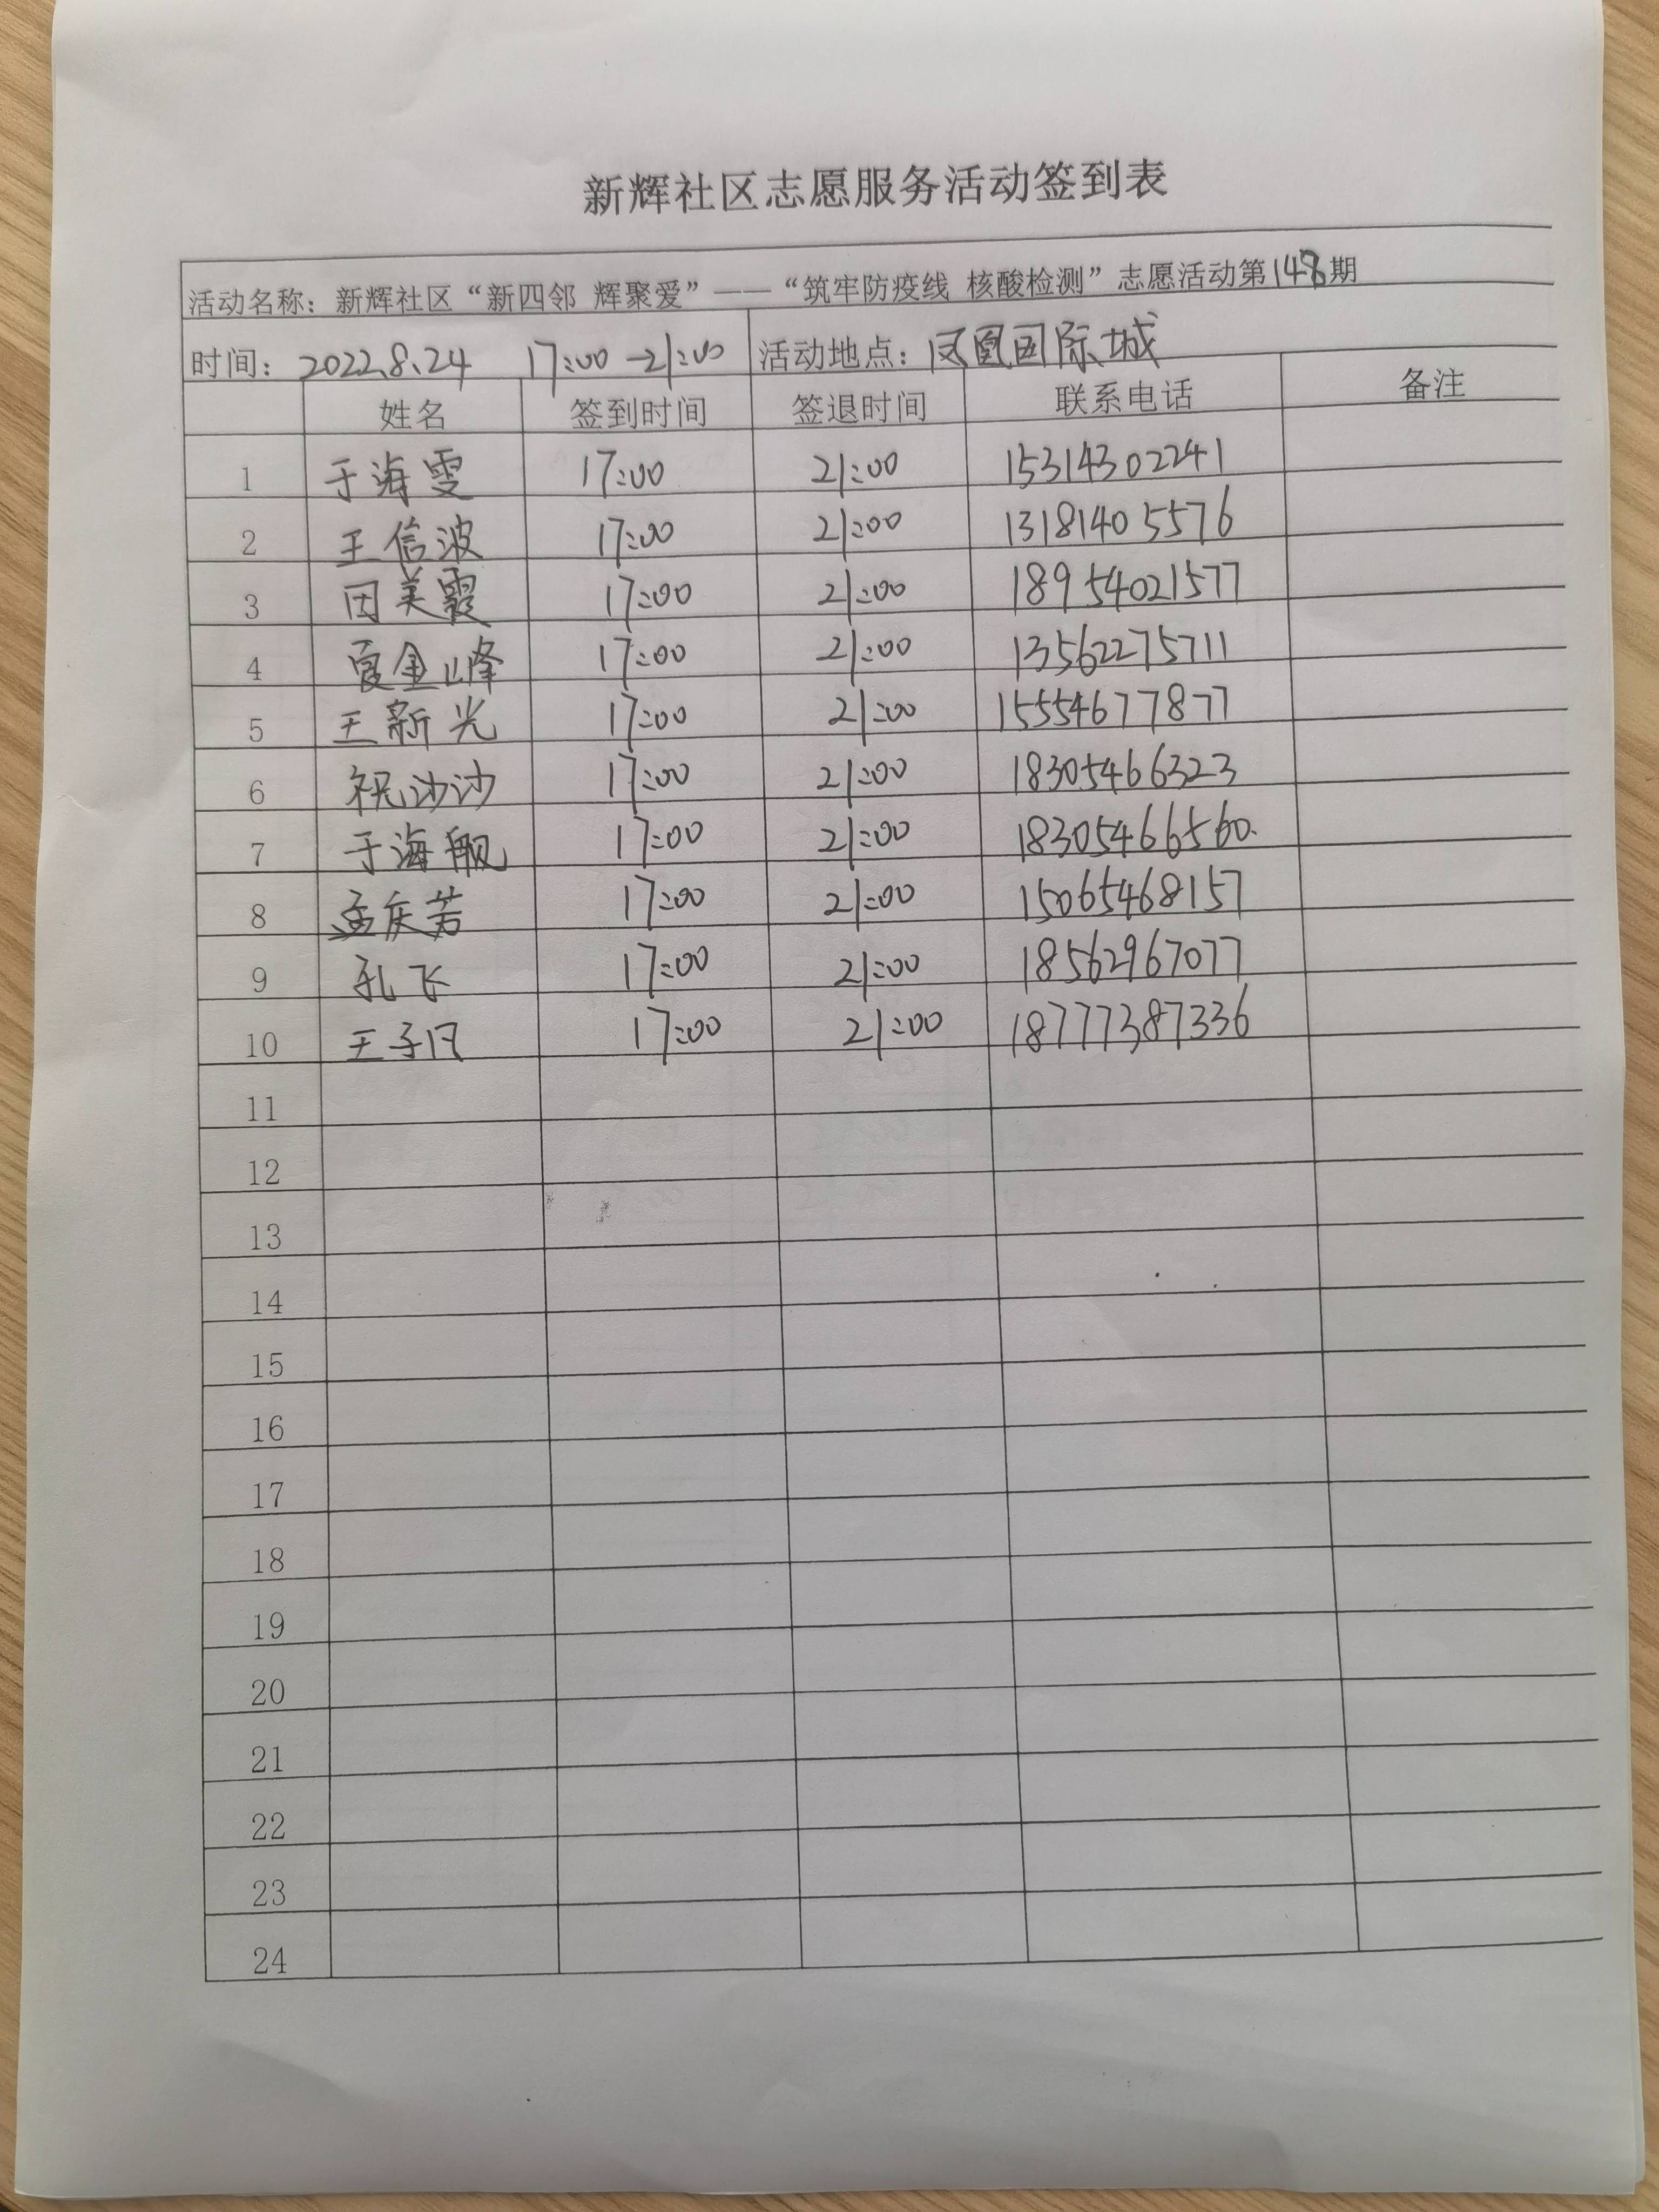 新辉社区志愿服务活动签到表
活动名称：新辉社区“新四邻 辉聚爱”——“筑牢防疫线 核酸检测”志愿活动第148期
时间：2022.8.24 17:00-21:00 活动地点：凤凰国际城
姓名 签到时间 签退时间 联系电话 备注
1 于海雯 17:00 21:00 15314302241
2 王信波 17:00 21:00 13181405576
3 田美霞 17:00 21:00 18954021577
4 夏金峰 17:00 21:00 13562275711
5 王新光 17:00 21:00 15554677877
6 祝沙沙 17:00 21:00 18305466323
7 于海舰 17:00 21:00 18305466560.
8 孟庆芳 17:00 21:00 15065468157
9 孔飞 17:00 21:00 18562967077
10 王子 17:00 21:00 18777387336
11
12
13
14
15
16
17
18
19
20
21
22
23
24